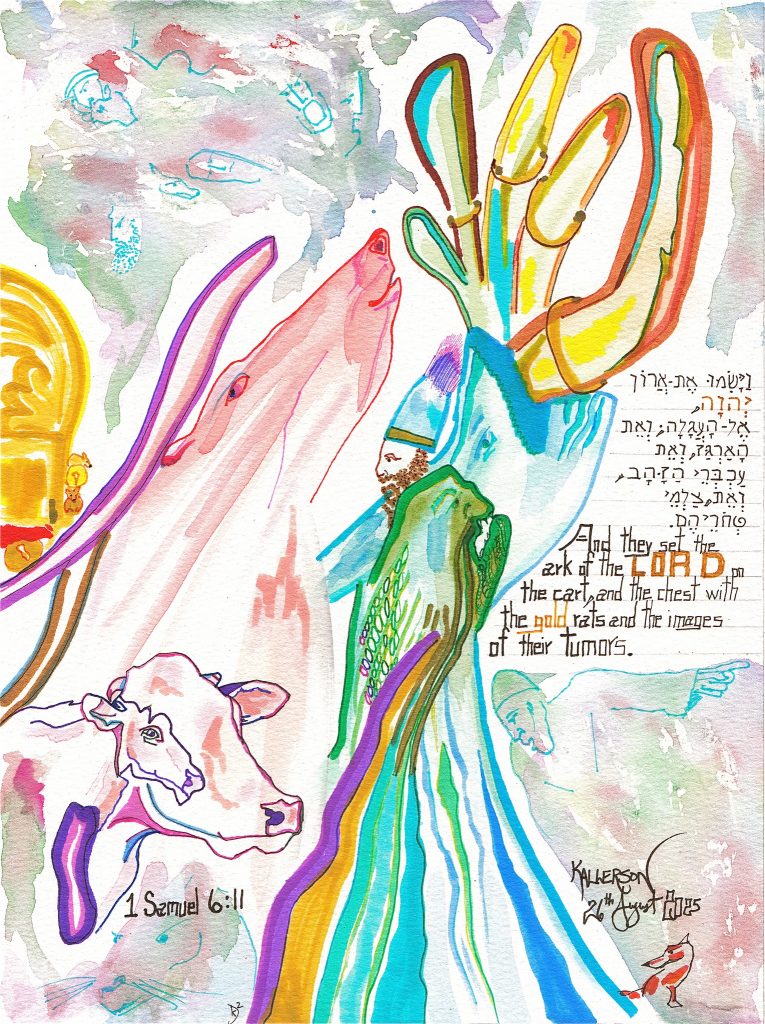 וַיָּשִׂמוּ אֶת-אֲרוֹן
יְהוָה,
אֶל-הָעֲגָלָה, וְאֵת
הָאַרְגַּז, וְאֵת
עַכְבְּרֵי הַזָּהָב,
וְאֵת, צַלְמֵי
טְחֹרֵיהֶם.
And they set the
ark of the LORD on
the cart, and the chest with
the gold rats and the images
of their tumors.
1 Samuel 6:11
KALLERSON
26th August 2025